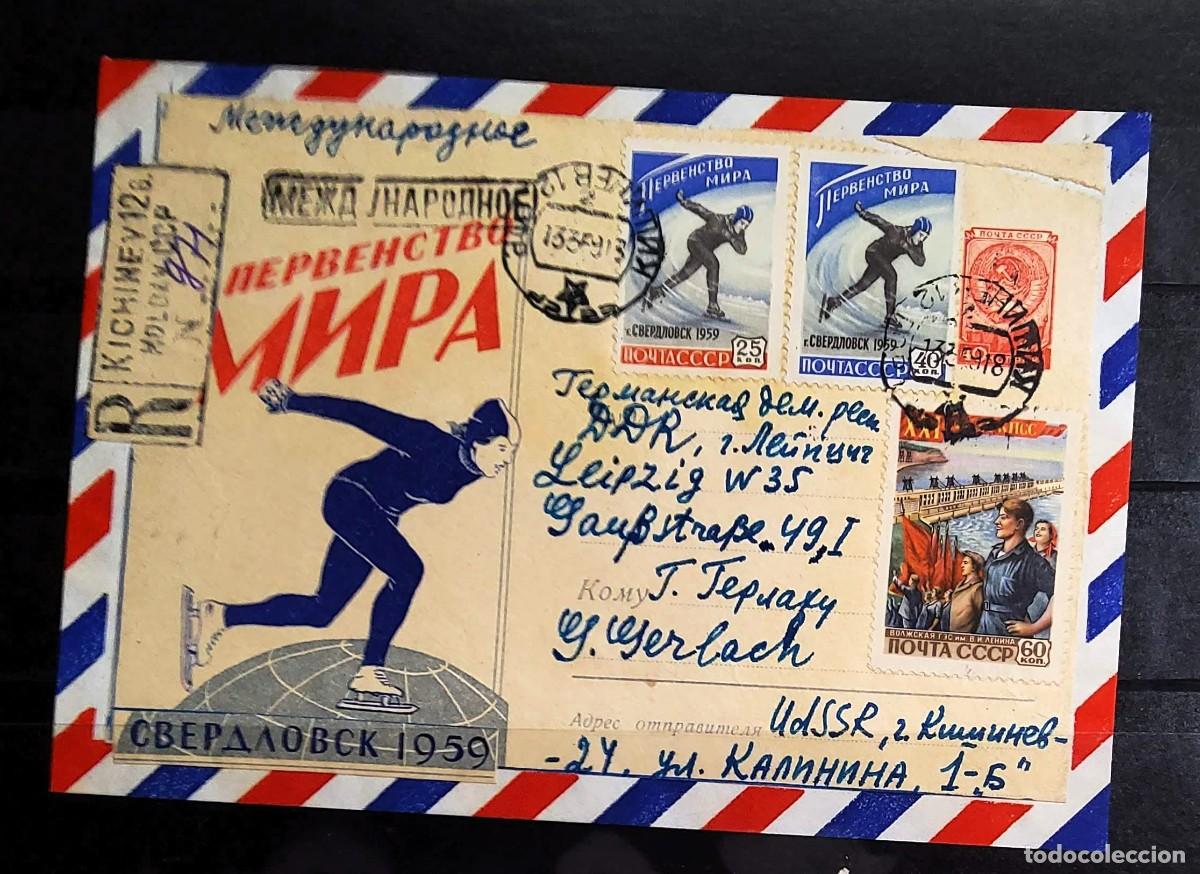 Международное
МЕЖДУНАРОДНОЕ
R KICHINEV 12a.
MOLDAV. SSR
N
ПЕРВЕНСТВО
МИРА
СВЕРДЛОВСК 1959
ПЕРВЕНСТВО
МИРА
г. СВЕРДЛОВСК 1959
ПОЧТА СССР 25 КОП.
ПЕРВЕНСТВО
МИРА
г. СВЕРДЛОВСК 1959
ПОЧТА СССР 40 КОП.
ПОЧТА СССР
XXI КПСС
ВОЛЖСКАЯ ГЭС ИМ. В.И. ЛЕНИНА
ПОЧТА СССР 60 КОП.
Германская дем. респ.
DDR, г. Лейпциг
Leipzig W 35
Gaußstraße 49, I
Кому Г. Герлаху
G. Gerlach
Адрес отправителя UdSSR, г. Кишинев-
-24, ул. КАЛИНИНА, 1-„Б"
todocoleccion